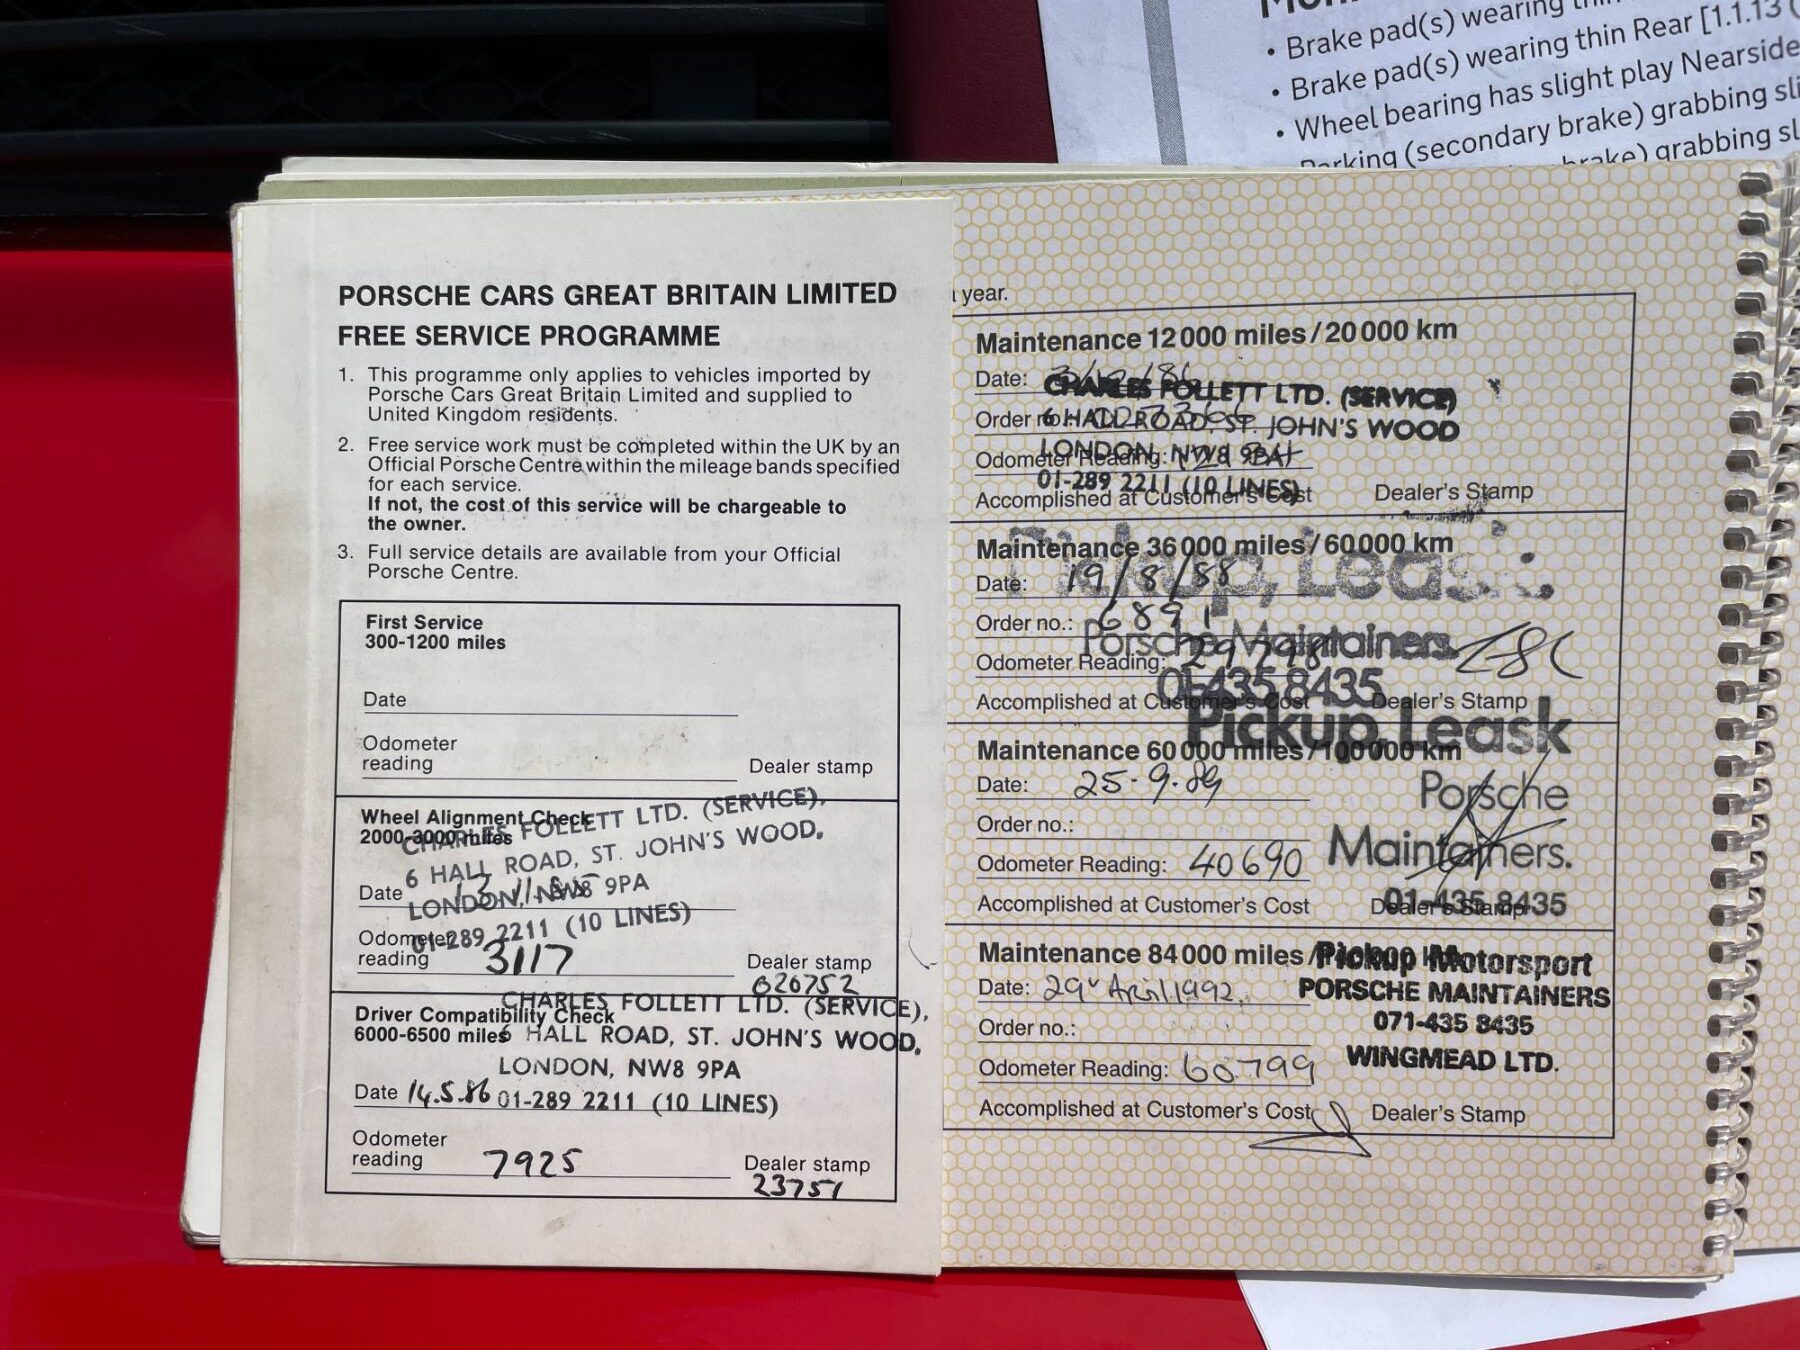 Brake pad(s) wearing
• Brake pad(s) wearing thin Rear [1.1.13
• Wheel bearing has slight play Nearside
• Parking (secondary brake) grabbing
brake) grabbing
PORSCHE CARS GREAT BRITAIN LIMITED
FREE SERVICE PROGRAMME
1. This programme only applies to vehicles imported by
Porsche Cars Great Britain Limited and supplied to
United Kingdom residents.
2. Free service work must be completed within the UK by an
Official Porsche Centre within the mileage bands specified
for each service.
If not, the cost of this service will be chargeable to
the owner.
3. Full service details are available from your Official
Porsche Centre.
First Service
300-1200 miles
Date
Odometer
reading
Dealer stamp
Wheel Alignment Check
2000-3000 miles
CHARLES FOLLETT LTD. (SERVICE),
6 HALL ROAD, ST. JOHN'S WOOD,
LONDON, NW8 9PA
01-289 2211 (10 LINES)
Date 13.11.85
Odometer
reading 3117
Dealer stamp
020752
Driver Compatibility Check
6000-6500 miles
CHARLES FOLLETT LTD. (SERVICE),
6 HALL ROAD, ST. JOHN'S WOOD,
LONDON, NW8 9PA
01-289 2211 (10 LINES)
Date 14.5.86
Odometer
reading 7925
Dealer stamp
23751
year.
Maintenance 12 000 miles/20 000 km
Date:
Order no.:
Odometer Reading:
Accomplished at Customer's Cost Dealer's Stamp
CHARLES FOLLETT LTD. (SERVICE)
6 HALL ROAD, ST. JOHN'S WOOD
LONDON, NW8 9PA
01-289 2211 (10 LINES)
Maintenance 36 000 miles/60 000 km
Date: 19/8/88
Order no.: 6891
Odometer Reading: 29798
Accomplished at Customer's Cost Dealer's Stamp
Pickup, Leask.
Porsche Maintainers.
01-435 8435
Maintenance 60 000 miles/100 000 km
Date: 25.9.89
Order no.:
Odometer Reading: 40690
Accomplished at Customer's Cost Dealer's Stamp
Pickup, Leask
Porsche
Maintainers.
01-435 8435
Maintenance 84 000 miles/140 000 km
Date: 29 April 1992.
Order no.:
Odometer Reading: 60799
Accomplished at Customer's Cost Dealer's Stamp
Pickup Motorsport
PORSCHE MAINTAINERS
071-435 8435
WINGMEAD LTD.